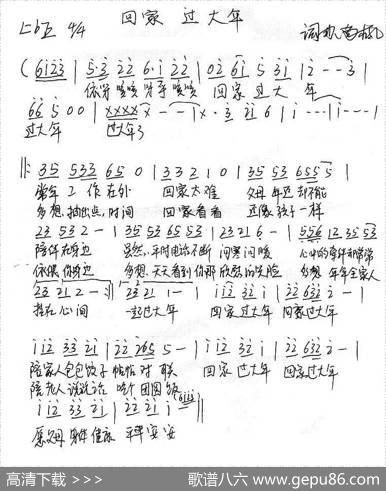 回家过大年
1=♭E 4/4
(6123 | 53 22 6·1 22 | 02 61 5 31 | 2 - - 3 |
依呀 咳咳 呀乎 咳咳 回家 过大 年
66 5 0 0 | xxxx x - - | x · 3 21 6 | 1 - - - | 1 - - -
过大年 过大年了
‖: 35 533 65 0 | 3 3 2 1 0 | 35 53 655 5 |
常年工作在外 回家太难 父母年迈却不能
多想抽出点时间 回家看看 还像孩子一样
23 53 2 - | 35 53 65 53 | 23 21 6 - | 556 12 35 53
陪伴在身边 虽然平时电话不断 问寒问暖 心中的牵伴却常常
依偎你身边 多想天天看到你那欣慰的笑脸 多想年年全家人
23 21 2 - :‖ 23 21 1 - | 112 32 1 | 22 632 2 - |
挂在心间 一起过大年 回家过大年 回家过大年
112 33 21 | 22 765 5 - | 112 32 1 | 22 632 2 - |
陪家人包包饺子 帖帖对联 回家过大年 回家过大年
陪老人说说话 吃个团圆饭
112 33 21 | 22 21 1 6123 ‖
愿父母身体健康 平平安安
高清下载 >>> 歌谱八六 www.gepu86.com